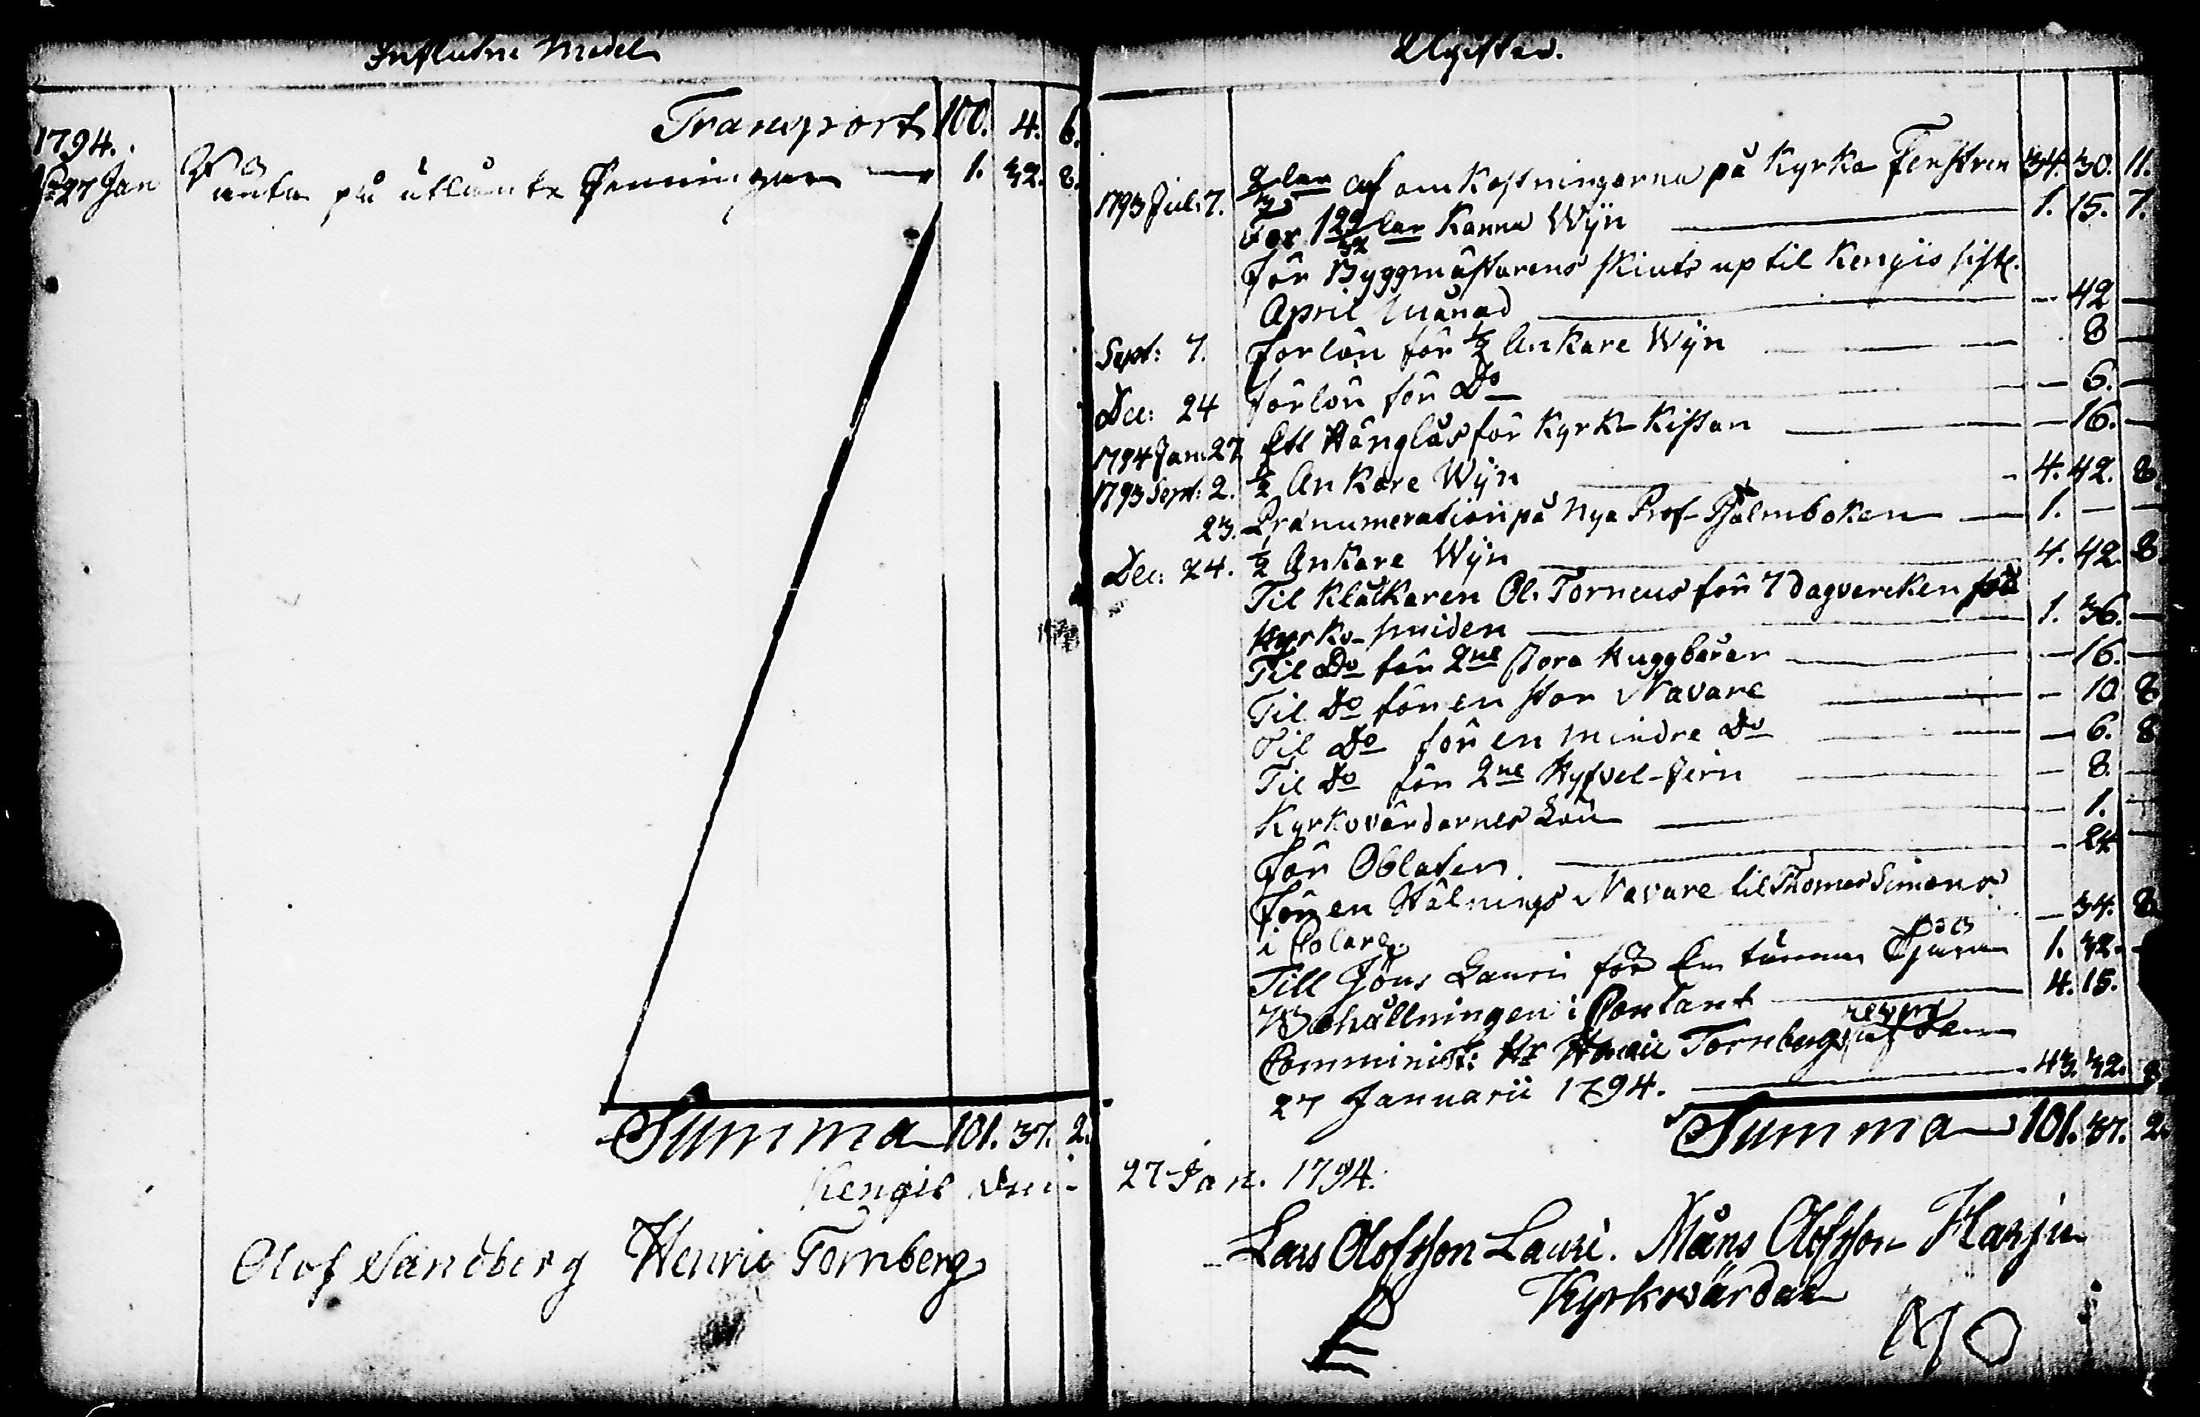 Influtne Medel
Transport 100. 4. 6.
1794.
d. 27 Jan Ränta på utlånte Penningar 1. 32. 8.
Summa 101. 37. 2.
Kengis den
Olof Sandberg Henric Tornberg
Utgifter.
1793 Jul: 7. 2/3 lar af omkostningarna på Kyrko Fenstren 34. 30. 11.
För 1 29/32 lar Kanna Wijn 1. 15. 7.
För Byggmästarens skiuts up til Kengis sistl.
April Månad — 42 —
Sept: 7. Forlön för ½ Ankare Wijn 8 —
Dec: 24 Förlön för Do — 6. —
1794 Jan: 27. Ett Hänglås för Kyrk-Kistan — 16. —
1793 Sept: 2. ½ Ankare Wijn 4. 42. 8.
23. Prænumeration på Nya Prof-Psalmboken 1. — —
Dec: 24. ½ Ankare Wijn 4. 42. 8.
Til Klåckaren Ol. Torneus för 7 dagsvercken för
Kyrko-smiden 1. 36. —
Til Do för 2ne stora Huggbårar — 16. —
Til Do för en stor Navare — 10 8
Til Do för en mindre Do — 6. 8
Til Do för 2ne Hyfvel-Jern — 8. —
Kyrkovärdarnes Lön — 1. —
För Oblater — 24 —
För en Hålnings Navare til Thomas Simons
i Colare — 34. 8
Till Jöns Lauri för En tunna Tjära 1. 32. —
Behållningen i Contant 4. 15.
Comminist: Hr Henric Tornbergs revers af den
27 Januarii 1794. 43. 32. 8.
Summa 101. 37. 2.
27 Jan. 1794.
Lars Olofsson Lauri. Måns Olofsson Harju
Kyrkovärdar
MO